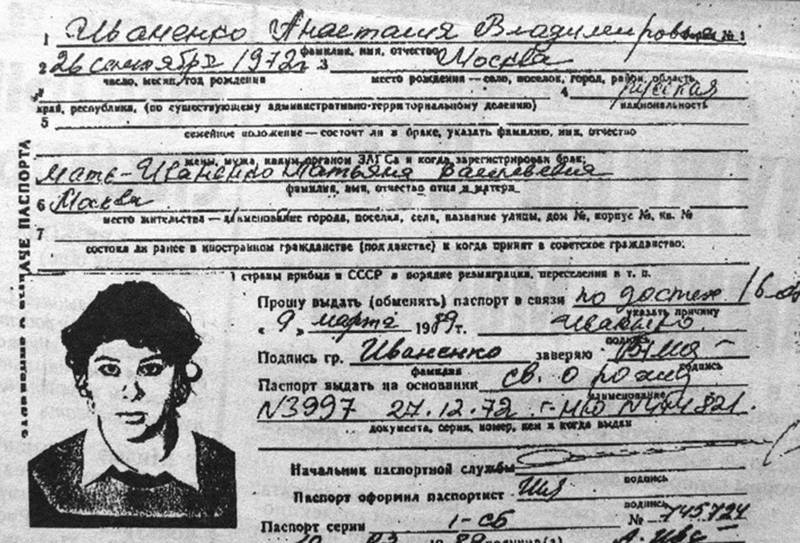 1 Иваненко Анастасия Владимировна № 1
фамилия, имя, отчество
2 26 сентября 1972г 3 Москва
число, месяц, год рождения место рождения — село, поселок, город, район, область,
4 русская
край, республика, (по существующему административно-территориальному делению) национальность
5
семейное положение — состоит ли в браке, указать фамилию, имя, отчество
жены, мужа, каким органом ЗАГСа и когда зарегистрирован брак;
Мать - Иваненко Татьяна Васильевна
фамилия, имя, отчество отца и матери
6 Москва
место жительства — наименование города, поселка, села, название улицы, дом №, корпус №, кв. №
7
состоял ли ранее в иностранном гражданстве (подданстве) и когда принят в советское гражданство;
страны прибыл в СССР в порядке реэмиграции, переселения и т. п.
Прошу выдать (обменять) паспорт в связи по достиж 16
указать причину
« 9 » марта 1989 г. Иваненко
подпись
Подпись гр. Иваненко заверяю
фамилия подпись
Паспорт выдать на основании св. о рожд
наименование
N3997 27.12.72 г.
документа, серия, номер, кем и когда выдан
Начальник паспортной службы
подпись
Паспорт оформил паспортист
подпись
Паспорт серии I-СБ № 745724
ВЫДАЧЕ ПАСПОРТА